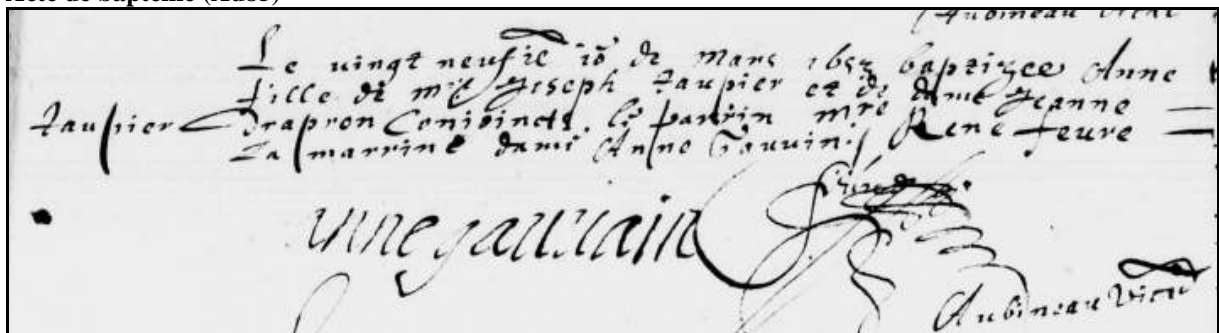 Acte de baptême (Ad85)
Aubineau Vicai
Le vingt neufie io de Mars 1652 baptizee Anne
fille de mre Joseph taupier et de dame Jeanne
taupier Drapron Conioincts le parrin mre Rene feure
La marrine dame Anne Gauvin
anne gauuain
Aubineau Vicai